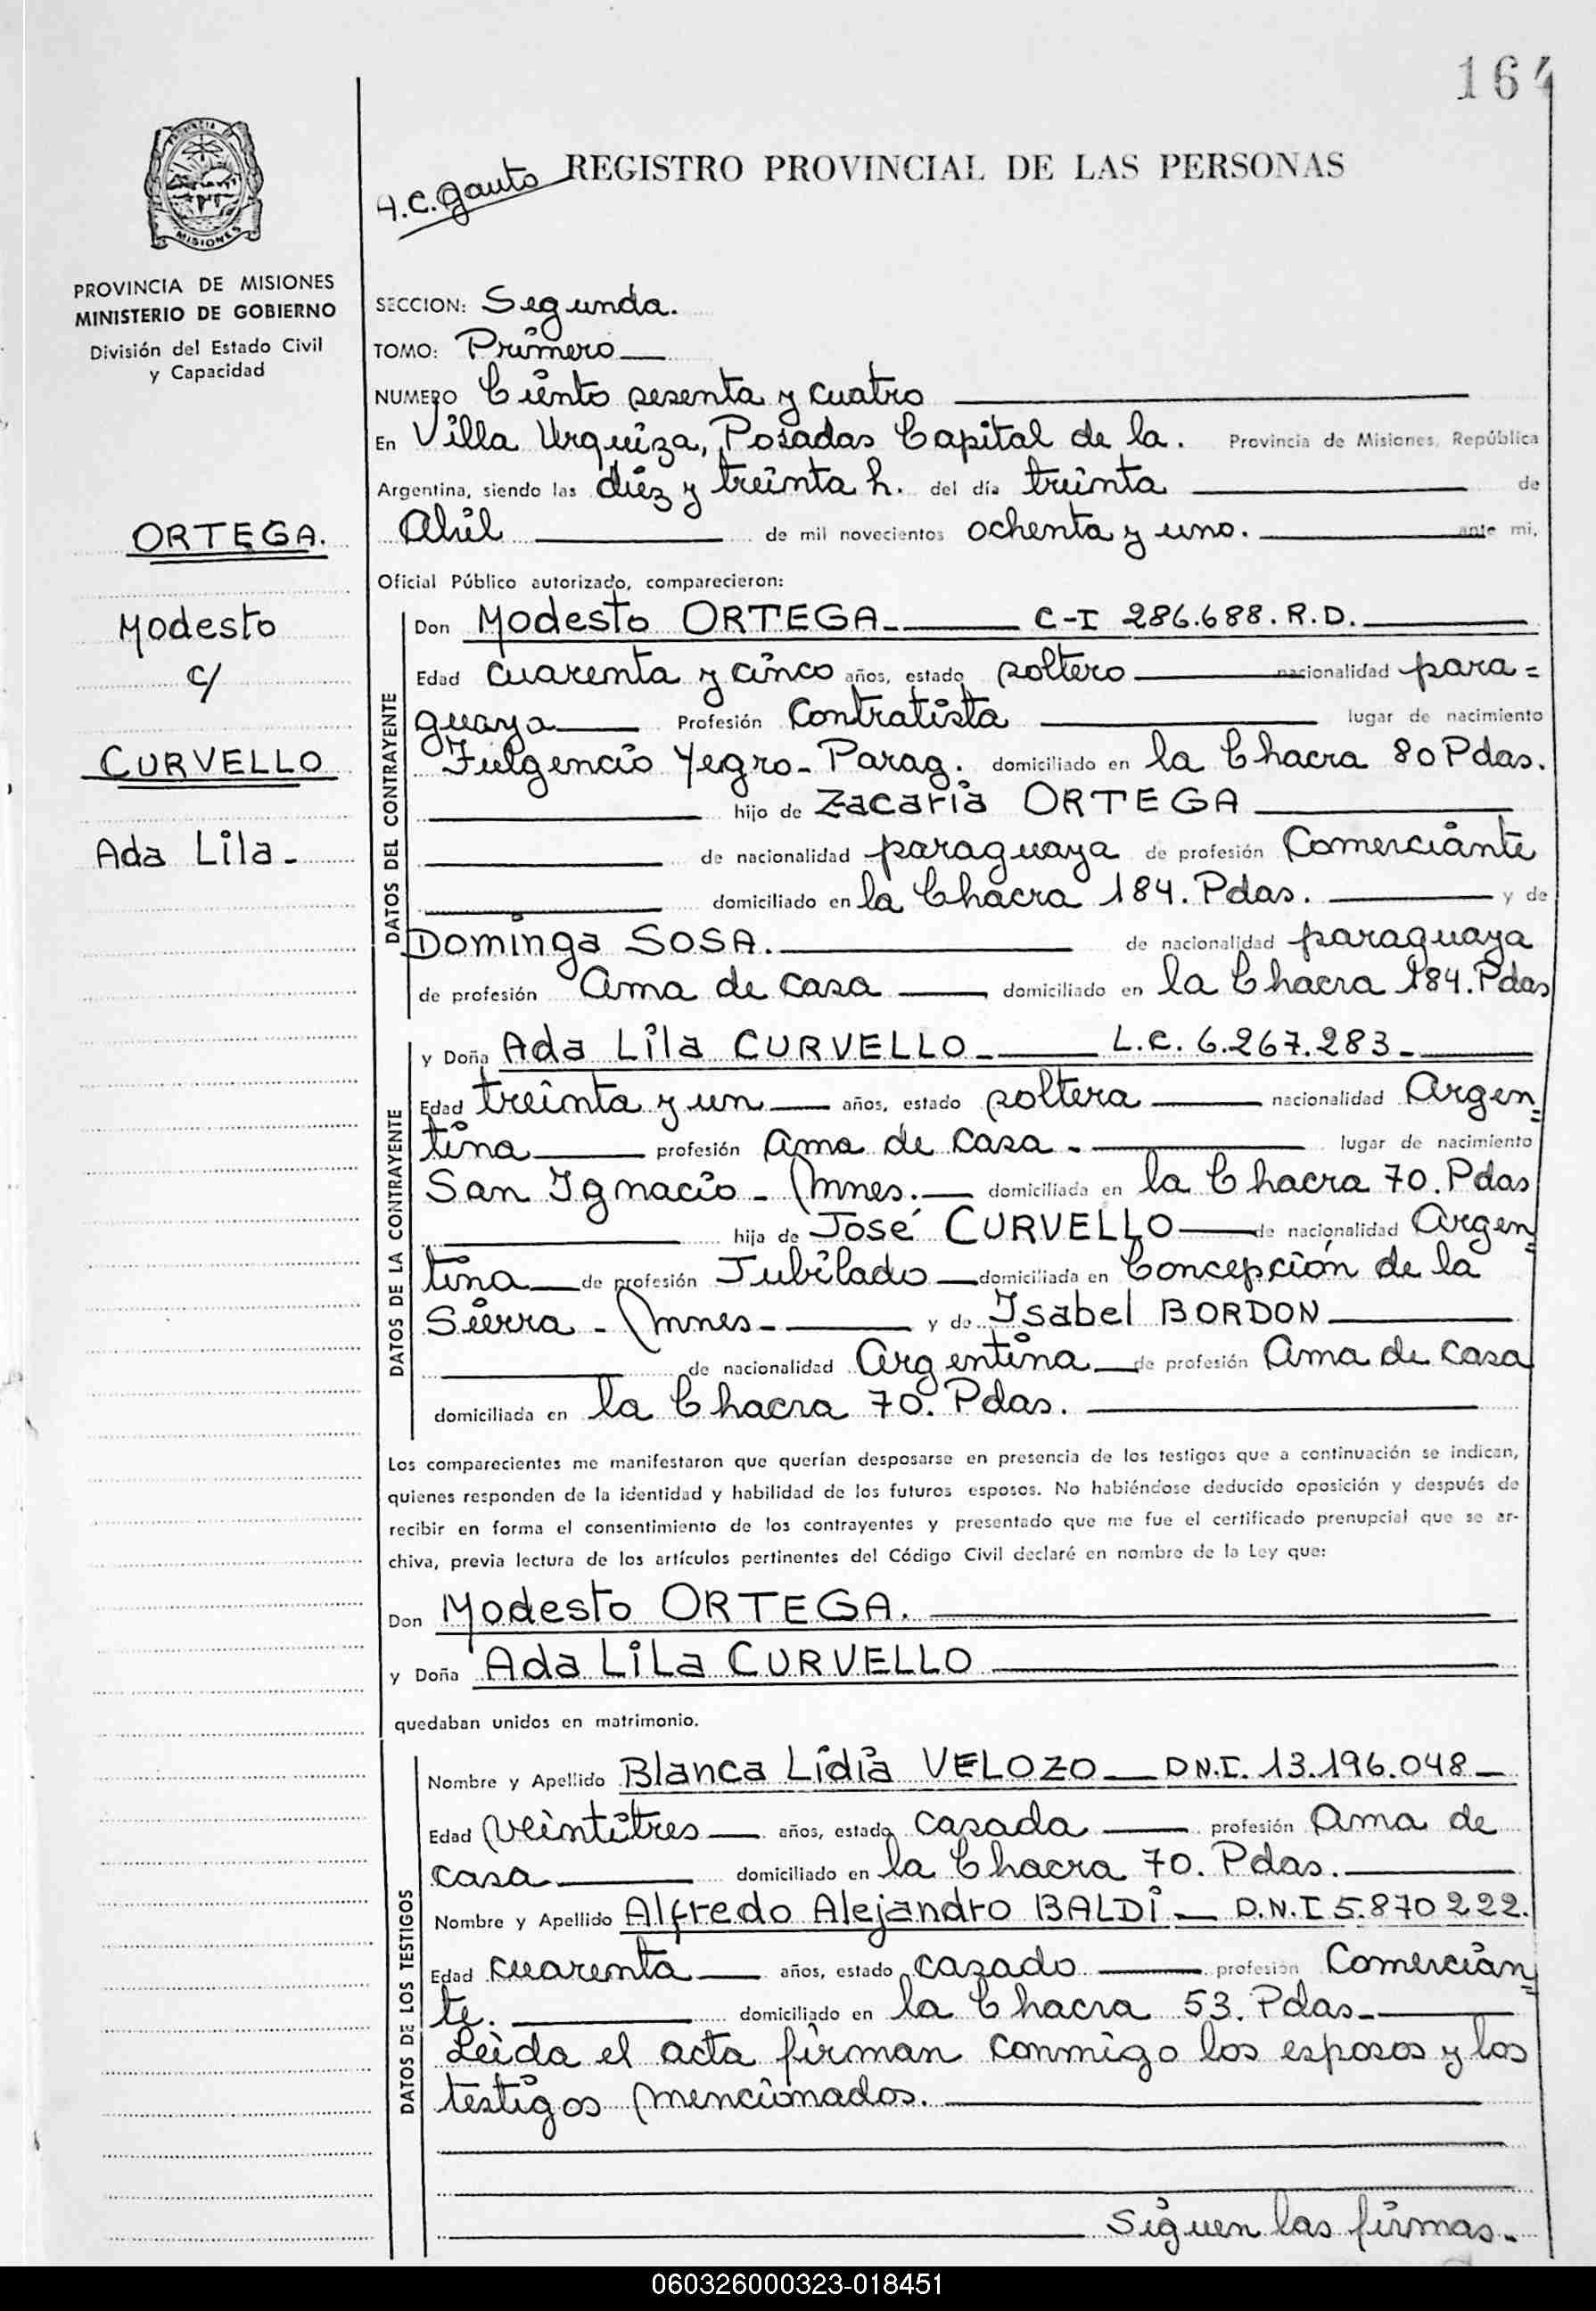 164
A.C. Gauto
REGISTRO PROVINCIAL DE LAS PERSONAS
PROVINCIA
MISIONES
PROVINCIA DE MISIONES
MINISTERIO DE GOBIERNO
División del Estado Civil
y Capacidad
ORTEGA.
Modesto
c/
CURVELLO
Ada Lila-
SECCION: Segunda.
TOMO: Primero
NUMERO Ciento sesenta y cuatro
En Villa Urquiza, Posadas Capital de la. Provincia de Misiones, República
Argentina, siendo las diez y treinta h. del día treinta de
Abril de mil novecientos ochenta y uno. ante mi,
Oficial Público autorizado, comparecieron:
DATOS DEL CONTRAYENTE
Don Modesto ORTEGA. C-I 286.688. R.D.
Edad cuarenta y cinco años, estado soltero nacionalidad para=
guaya Profesión Contratista lugar de nacimiento
Fulgencio Yegro- Parag. domiciliado en la Chacra 80 Pdas.
hijo de Zacaria ORTEGA
de nacionalidad paraguaya de profesión Comerciante
domiciliado en la Chacra 184. Pdas. y de
Dominga SOSA. de nacionalidad paraguaya
de profesión Ama de casa domiciliado en la Chacra 184. Pdas
DATOS DE LA CONTRAYENTE
y Doña Ada Lila CURVELLO- L.C. 6.267.283-
Edad treinta y un años, estado soltera nacionalidad Argen=
tina profesión Ama de casa - lugar de nacimiento
San Ignacio - Mnes. domiciliada en la Chacra 70. Pdas
hija de José CURVELLO de nacionalidad Argen=
tina de profesión Jubilado domiciliada en Concepción de la
Sierra - Mnes- y de Isabel BORDON
de nacionalidad Argentina de profesión Ama de casa
domiciliada en la Chacra 70. Pdas.
Los comparecientes me manifestaron que querían desposarse en presencia de los testigos que a continuación se indican,
quienes responden de la identidad y habilidad de los futuros esposos. No habiéndose deducido oposición y después de
recibir en forma el consentimiento de los contrayentes y presentado que me fue el certificado prenupcial que se ar-
chiva, previa lectura de los artículos pertinentes del Código Civil declaré en nombre de la Ley que:
Don Modesto ORTEGA.
y Doña Ada Lila CURVELLO
quedaban unidos en matrimonio.
DATOS DE LOS TESTIGOS
Nombre y Apellido Blanca Lidia VELOZO D.N.I. 13.196.048-
Edad veintitres años, estado casada profesión Ama de
casa domiciliado en la Chacra 70. Pdas.
Nombre y Apellido Alfredo Alejandro BALDI D.N.I 5.870222.
Edad cuarenta años, estado casado profesión Comercian=
te. domiciliado en la Chacra 53. Pdas-
Leida el acta firman conmigo los esposos y los
testigos mencionados.
Siguen las firmas-
060326000323-018451